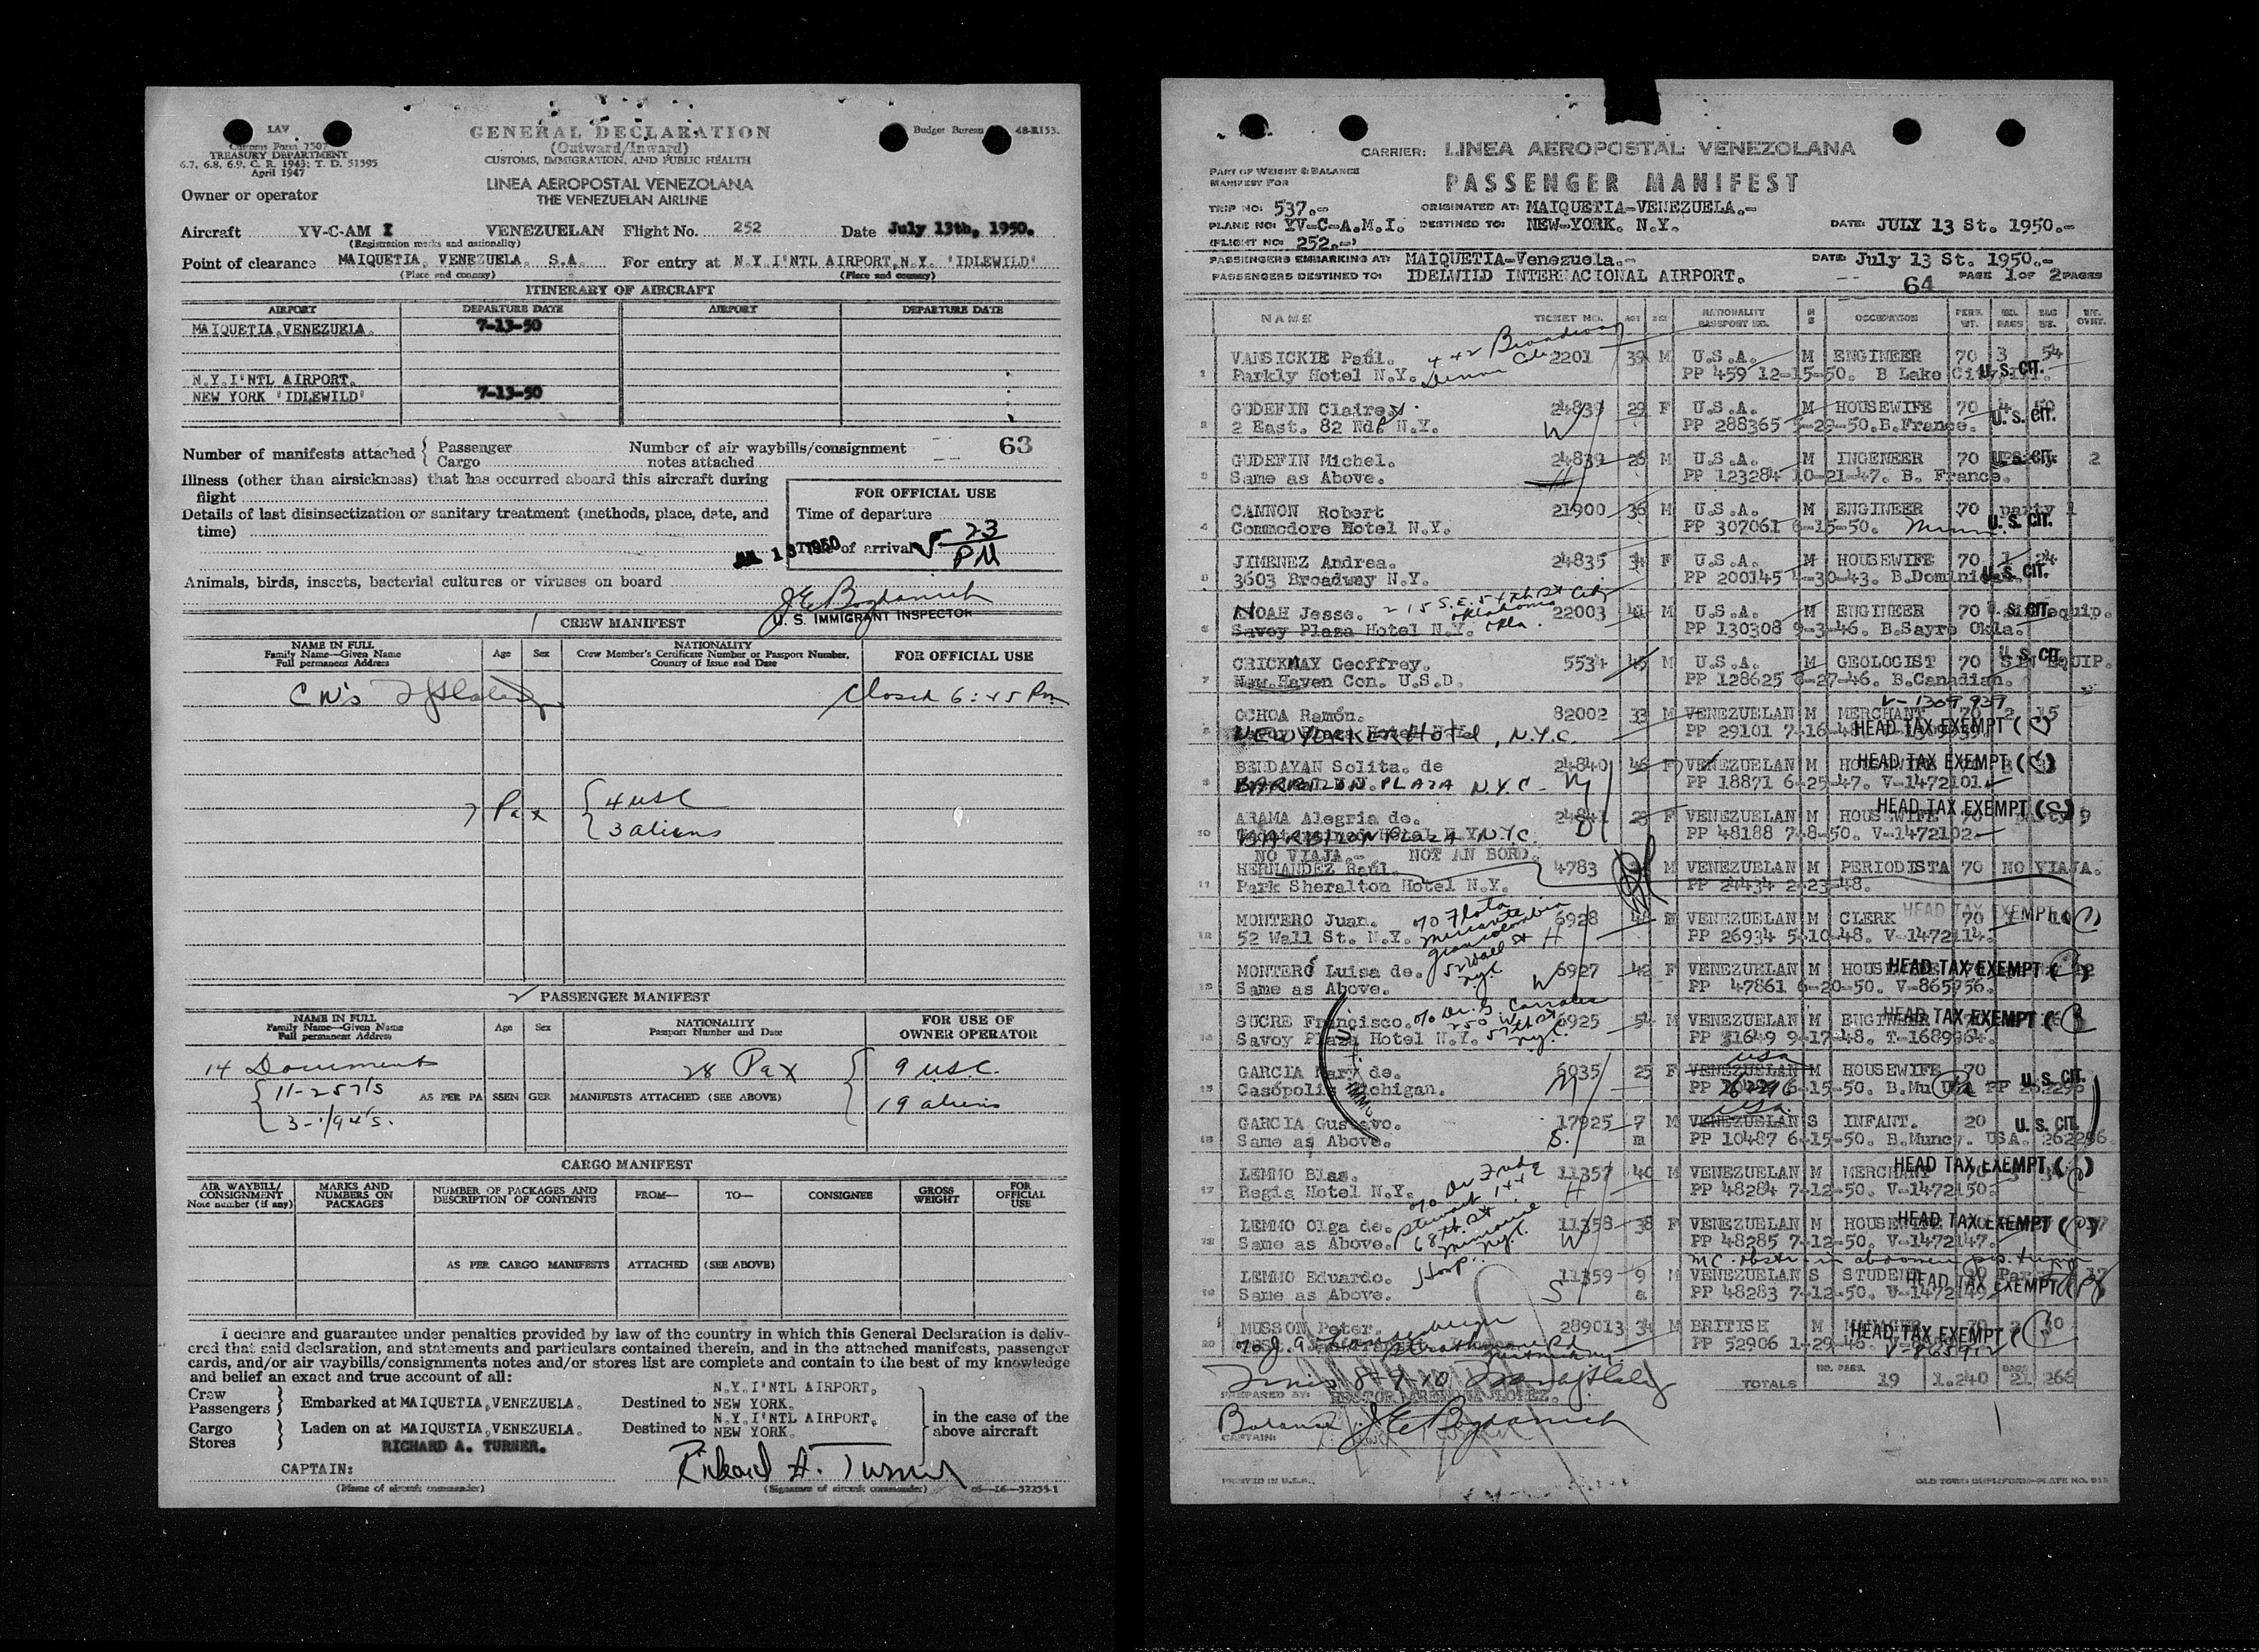 LAV
Customs Form 7507
TREASURY DEPARTMENT
6.7, 6.8, 6.9, C. R. 1943: T. D. 51595
April 1947
GENERAL DECLARATION
(Outward/Inward)
CUSTOMS, IMMIGRATION, AND PUBLIC HEALTH
Budget Bureau 48-R153.
LINEA AEROPOSTAL VENEZOLANA
THE VENEZUELAN AIRLINE
Owner or operator
Aircraft YV-C-AM I VENEZUELAN Flight No. 252 Date July 13th, 1950.
(Registration marks and nationality)
Point of clearance MAIQUETIA, VENEZUELA, S.A. For entry at N.Y.I'NTL AIRPORT,N.Y. 'IDLEWILD'
(Place and country) (Place and country)
ITINERARY OF AIRCRAFT
AIRPORT DEPARTURE DATE AIRPORT DEPARTURE DATE
MAIQUETIA,VENEZUELA. 7-13-50
N.Y.I'NTL AIRPORT,
NEW YORK 'IDLEWILD' 7-13-50
63
Number of manifests attached { Passenger Number of air waybills/consignment
Cargo notes attached
Illness (other than airsickness) that has occurred aboard this aircraft during
flight
Details of last disinsectization or sanitary treatment (methods, place, date, and
time)
FOR OFFICIAL USE
Time of departure
JUL 13 1950 Time of arrival 5-23
PM
Animals, birds, insects, bacterial cultures or viruses on board
J E Bogdanich
U. S. IMMIGRANT INSPECTOR
1 CREW MANIFEST
NAME IN FULL
Family Name—Given Name
Full permanent Address
Age Sex
NATIONALITY
Crew Member's Certificate Number or Passport Number,
Country of Issue and Date
FOR OFFICIAL USE
Closed 6:45 Pm
7 Pax { 4 USC
3 aliens
2 PASSENGER MANIFEST
NAME IN FULL
Family Name—Given Name
Full permanent Address
Age Sex
NATIONALITY
Passport Number and Date
FOR USE OF
OWNER OPERATOR
14 Documents 28 Pax { 9 USC.
{ 11-257's AS PER PA SSEN GER MANIFESTS ATTACHED (SEE ABOVE) 19 aliens
3-I/94's.
CARGO MANIFEST
AIR WAYBILL/
CONSIGNMENT
Note number (if any)
MARKS AND
NUMBERS ON
PACKAGES
NUMBER OF PACKAGES AND
DESCRIPTION OF CONTENTS
FROM— TO— CONSIGNEE
GROSS
WEIGHT
FOR
OFFICIAL
USE
AS PER CARGO MANIFESTS ATTACHED (SEE ABOVE)
I declare and guarantee under penalties provided by law of the country in which this General Declaration is deliv-
ered that said declaration, and statements and particulars contained therein, and in the attached manifests, passenger
cards, and/or air waybills/consignments notes and/or stores list are complete and contain to the best of my knowledge
and belief an exact and true account of all:
Crew
Passengers } Embarked at MAIQUETIA,VENEZUELA. Destined to N.Y.I'NTL AIRPORT, NEW YORK.
Cargo
Stores } Laden on at MAIQUETIA,VENEZUELA. Destined to N.Y.I'NTL AIRPORT, NEW YORK.
in the case of the
above aircraft
RICHARD A. TURNER.
CAPTAIN: Richard A. Turner
(Name of aircraft commander) (Signature of aircraft commander) 16—52255-1
CARRIER: LINEA AEROPOSTAL VENEZOLANA
PART OF WEIGHT & BALANCE
MANIFEST FOR
PASSENGER MANIFEST
TRIP NO: 537.- ORIGINATED AT: MAIQUETIA-VENEZUELA.-
PLANE NO: YV-C-A.M.I. DESTINED TO: NEW-YORK. N.Y. DATE: JULY 13 St. 1950.-
(FLIGHT NO: 252.-)
PASSENGERS EMBARKING AT: MAIQUETIA-Venezuela.- DATE: July 13 St. 1950.-
PASSENGERS DESTINED TO: IDELWILD INTERNACIONAL AIRPORT. 64 PAGE 1 OF 2 PAGES
NAME TICKET NO. AGE SEX NATIONALITY PASSPORT NO. M S OCCUPATION PERS. WT. NO. BAGS BAG WT. WT. OVHT.
1 VANSICKLE Paúl. 442 Broadway 2201 39 M U.S.A. M ENGINEER 70 3 54
Parkly Hotel N.Y. PP 459 12-15-50. B Lake City U. S. CIT.
2 GUDEFIN Claire. 24839 29 F U.S.A. M HOUSEWIFE 70 4 50
2 East. 82 Nd. N.Y. W PP 288365 5-29-50.B.France. U. S. CIT.
3 GUDEFIN Michel. 24839 26 M U.S.A. M INGENEER 70 U. S. CIT. 2
Same as Above. PP 123284 10-21-47. B. France.
4 CANNON Robert 21900 36 M U.S.A. M ENGINEER 70 party 1
Commodore Hotel N.Y. PP 307061 6-15-50. U. S. CIT.
5 JIMENEZ Andrea. 24835 34 F U.S.A. M HOUSEWIFE 70 1 24
3603 Broadway N.Y. PP 200145 4-30-43. B.Dominic U. S. CIT.
6 NOAH Jesse. 215 S.E. 54th St City Oklahoma Okla. 22003 41 M U.S.A. M ENGINEER 70 U. S. CIT. equip.
Savoy Plaza Hotel N.Y. PP 130308 9-3-46. B.Sayre Okla.
7 CRICKMAY Geoffrey. 5534 45 M U.S.A. M GEOLOGIST 70 SIN EQUIP. U. S. CIT.
New.Haven Con. U.S.D. PP 128625 6-27-46. B.Canadian.
V-1309939
8 OCHOA Ramón. 82002 33 M VENEZUELAN M MERCHANT 70 2 15
NEW YORKER Hotel, N.Y.C. PP 29101 7-16-48. HEAD TAX EXEMPT
9 BENDAYAN Solita. de 24840 46 F VENEZUELAN M HOUSEWIFE HEAD TAX EXEMPT
BARBIZON PLAZA N.Y.C. PP 18871 6-25-47. V-1472101
10 ARAMA Alegria de. 24841 25 F VENEZUELAN M HOUSEWIFE 70 HEAD TAX EXEMPT 9
BARBIZON PLAZA N.Y.C. PP 48188 7-8-50. V-1472102
NO VIAJA.- NOT AN BORD.
11 HERNANDEZ Raúl. 4783 M VENEZUELAN M PERIODISTA 70 NO VIAJA.
Park Sheralton Hotel N.Y. PP 24434 2-23-48.
12 MONTERO Juan. c/o Flota Mercante Grancolombia 52 Wall St NYC 6928 M VENEZUELAN M CLERK 70 HEAD TAX EXEMPT
52 Wall St. N.Y. H PP 26934 5-10-48. V-1472114.
13 MONTERO Luisa de. 6927 42 F VENEZUELAN M HOUSEWIFE HEAD TAX EXEMPT
Same as Above. W PP 47861 6-20-50. V-865756.
14 SUCRE Francisco. c/o Dr. G Corrales 250 W 57th St NYC 6925 54 M VENEZUELAN M ENGINEER HEAD TAX EXEMPT
Savoy Plaza Hotel N.Y. PP 31649 9-17-48. T-1689964.
15 GARCIA Mary de. 6035 25 F VENEZUELAN USA M HOUSEWIFE 70
Casópolis Michigan. M PP 262296 6-15-50. B.Mu USA PP 262296 U. S. CIT.
16 GARCIA Gustavo. 17925 7 m M VENEZUELAN USA S INFANT. 20 U. S. CIT.
Same as Above. S. PP 10487 6-15-50. B.Muncy. USA. 262296.
17 LEMMO Blas. 11357 40 M VENEZUELAN M MERCHANT HEAD TAX EXEMPT
Regis Hotel N.Y. H PP 48284 7-12-50. V-1472150.
18 LEMMO Olga de. 11358 38 F VENEZUELAN M HOUSEWIFE HEAD TAX EXEMPT
Same as Above. W PP 48285 7-12-50. V-1472147.
19 LEMMO Eduardo. 11359 9 a M VENEZUELAN S STUDENT HEAD TAX EXEMPT 17
Same as Above. S PP 48283 7-12-50. V-1472149
20 MUSSON Peter. 289013 34 M BRITISH M MANAGER HEAD TAX EXEMPT
PP 52906 1-29-46. V-865912
TOTALS NO. PASS. 19 1.240 BAGS 21 266
PREPARED BY: HECTOR ARENDNA LOPEZ.
J E Bogdanich
CAPTAIN:
PRINTED IN U.S.A. OLD TOWN DUPLIFORM-PLATE NO. 915